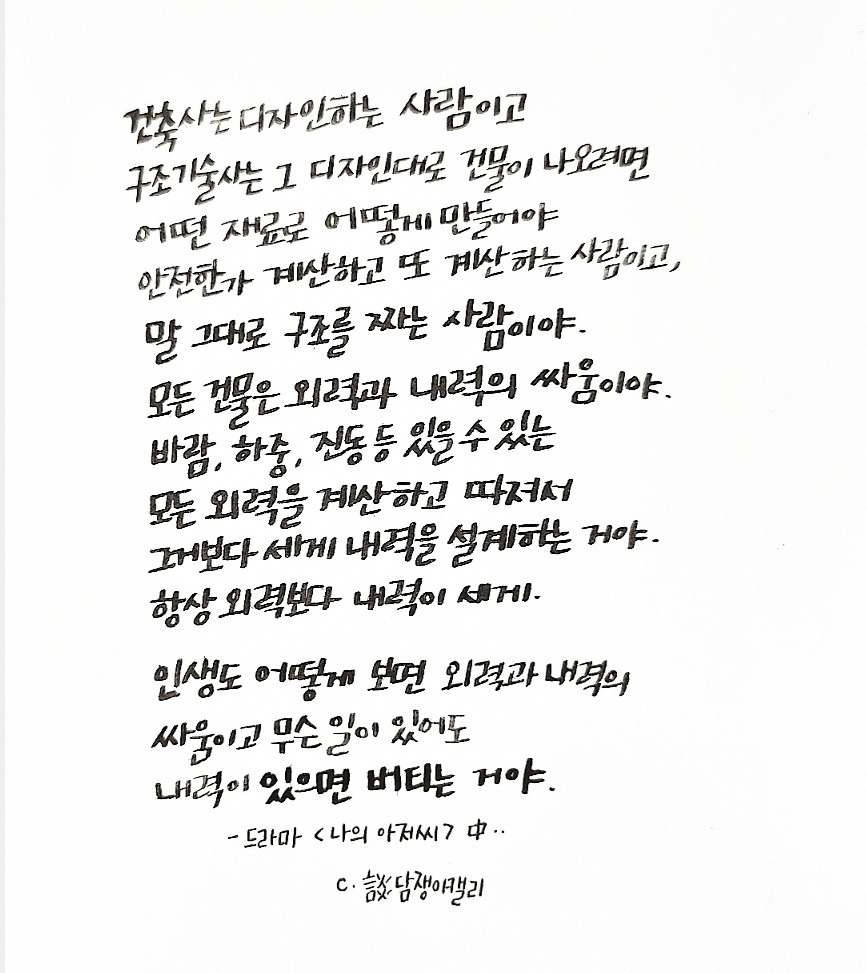 건축사는 디자인하는 사람이고
구조기술사는 그 디자인대로 건물이 나오려면
어떤 재료로 어떻게 만들어야
안전한가 계산하고 또 계산하는 사람이고,
말 그대로 구조를 짜는 사람이야.
모든 건물은 외력과 내력의 싸움이야.
바람, 하중, 진동 등 있을 수 있는
모든 외력을 계산하고 따져서
그거보다 세게 내력을 설계하는 거야.
항상 외력보다 내력이 세게.
인생도 어떻게 보면 외력과 내력의
싸움이고 무슨 일이 있어도
내력이 있으면 버티는 거야.
- 드라마 <나의 아저씨> 中..
c. 談담쟁이캘리